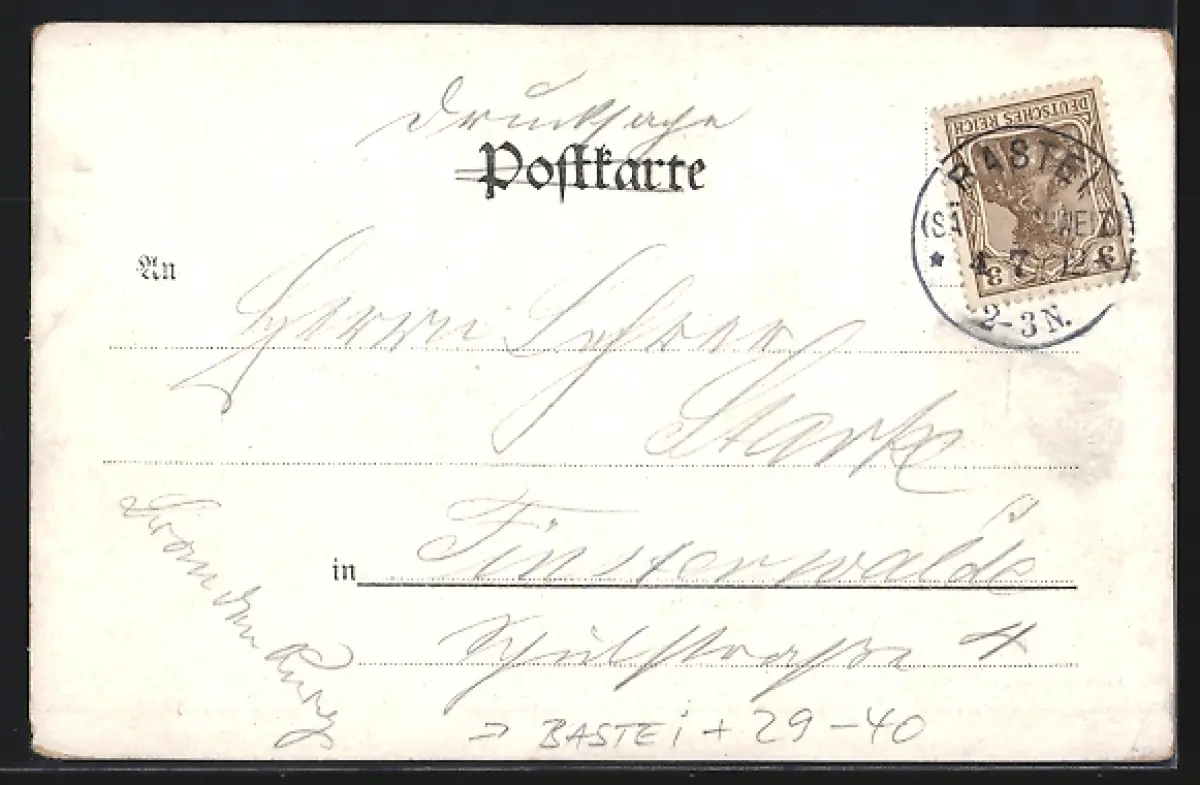 Drucksache
Postkarte
DEUTSCHES REICH
3 3
BASTEI
(SÄ SCHWEIZ)
* 4 7 02 *
2-3N.
An
Herrn Lehrer
Starke
in Finsterwalde
Schulstraße 4
Brandenburg
→ BASTEi + 29-40